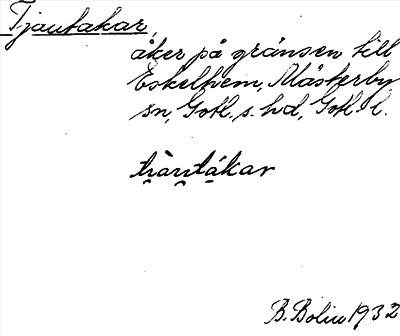 Tjautakar,
åker på gränsen till
Eskelhem, Mästerby
sn, Gotl. s. hd, Gotl. l.
B. Bolin 1932